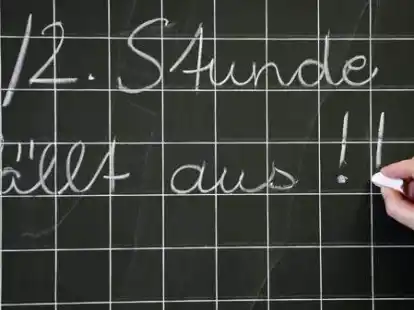 /2. Stunde
ällt aus !!